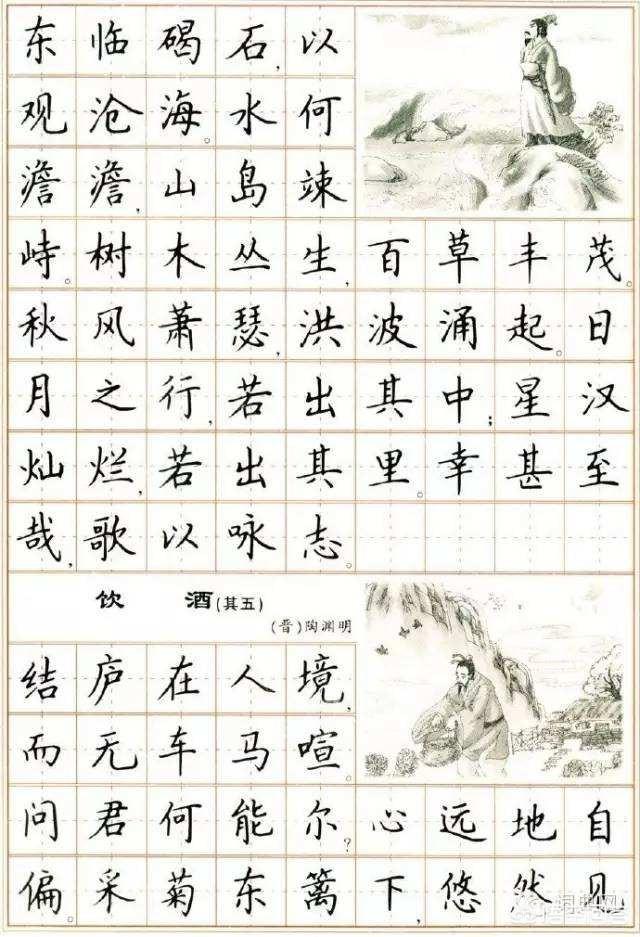 东临碣石,以
观沧海。水何
澹澹,山岛竦
峙。树木丛生,百草丰茂。
秋风萧瑟,洪波涌起。日
月之行,若出其中;星汉
灿烂,若出其里。幸甚至
哉,歌以咏志。
饮酒(其五)
(晋)陶渊明
结庐在人境,
而无车马喧。
问君何能尔?心远地自
偏。采菊东篱下,悠然见